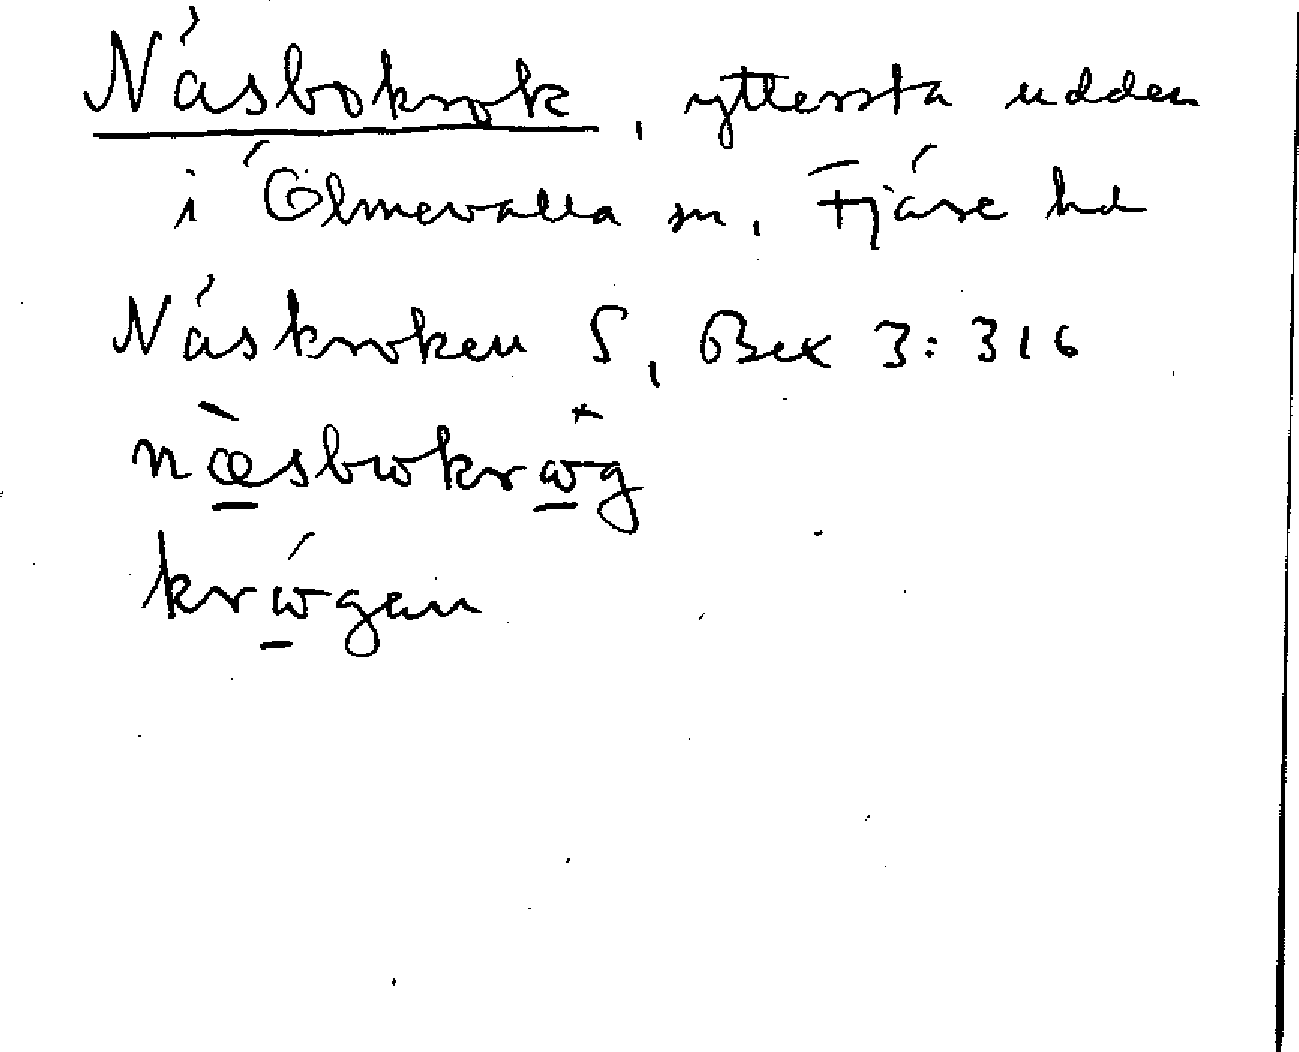 Näsbokrok, yttersta udden
i Ölmevalla sn, Fjäre hd
Näskroken S, Bex 3:316
næ̀sbωkrω̌g
krώgan